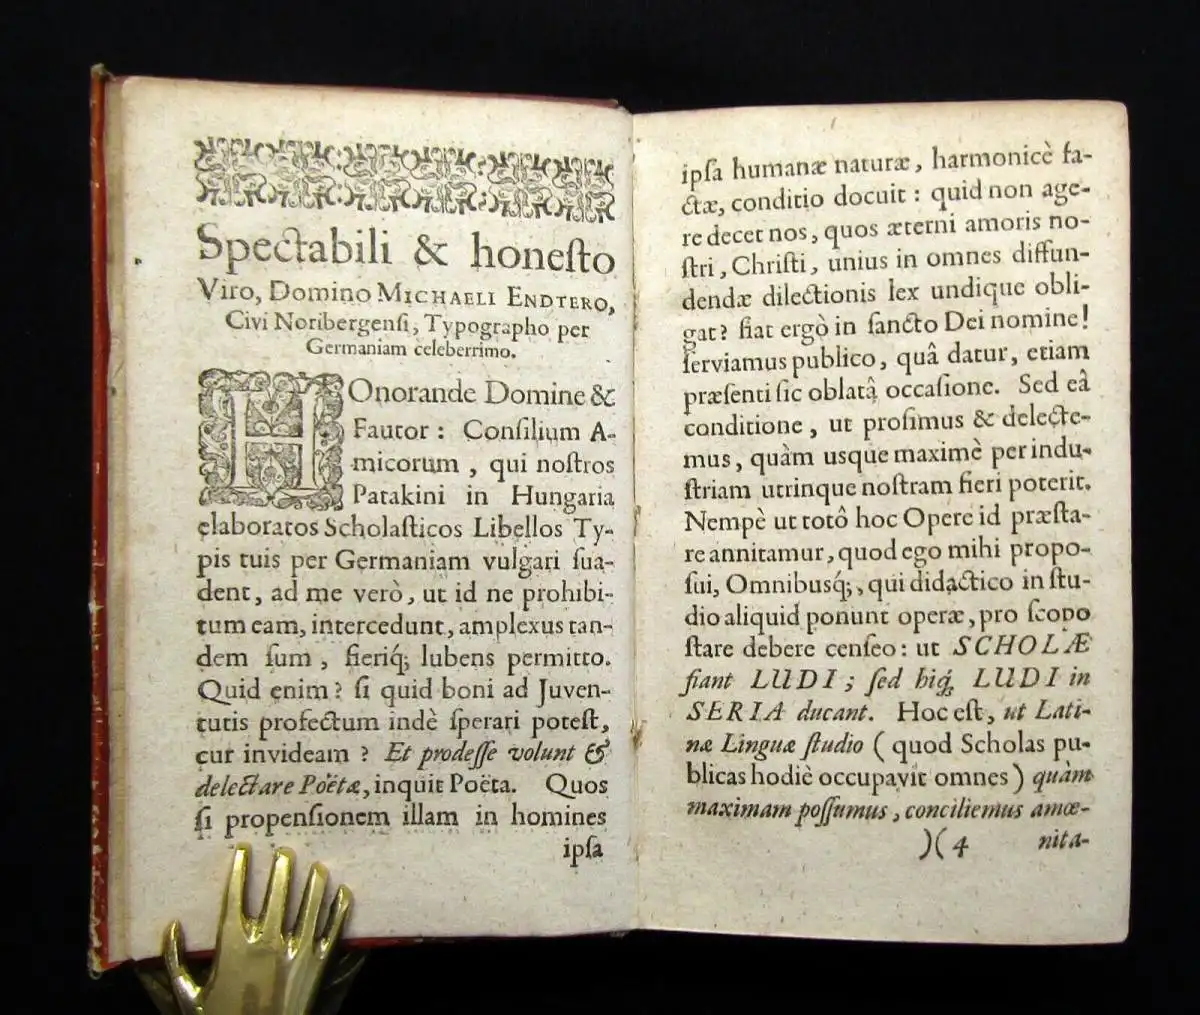 Spectabili & honeſto
Viro, Domino MICHAELI ENDTERO,
Civi Noribergenſi, Typographo per
Germaniam celeberrimo.
HOnorande Domine &
Fautor : Conſilium A-
micorum , qui noſtros
Patakini in Hungaria
elaboratos Scholaſticos Libellos Ty-
pis tuis per Germaniam vulgari ſua-
dent, ad me verò, ut id ne prohibi-
tum eam, intercedunt, amplexus tan-
dem ſum , fieriq́; lubens permitto.
Quid enim? ſi quid boni ad Juven-
tutis profectum indè ſperari poteſt,
cur invideam ? Et prodeſſe volunt &
delectare Poëtæ, inquit Poëta. Quos
ſi propenſionem illam in homines
ipſa
ipſa humanæ naturæ, harmonicè fa-
ctæ, conditio docuit : quid non age-
re decet nos, quos æterni amoris no-
ſtri, Chriſti, unius in omnes diffun-
dendæ dilectionis lex undique obli-
gat? fiat ergò in ſancto Dei nomine!
ſerviamus publico, quâ datur, etiam
præſenti ſic oblatâ occaſione. Sed eâ
conditione, ut proſimus & delecte-
mus, quàm usque maximè per indu-
ſtriam utrinque noſtram fieri poterit.
Nempè ut totô hoc Opere id præſta-
re annitamur, quod ego mihi propo-
ſui, Omnibusq́;, qui didactico in ſtu-
dio aliquid ponunt operæ, pro ſcopo
ſtare debere cenſeo: ut SCHOLÆ
fiant LUDI ; ſed hiq́; LUDI in
SERIA ducant. Hoc eſt, ut Lati-
næ Linguæ ſtudio ( quod Scholas pu-
blicas hodiè occupavit omnes) quàm
maximam poſſumus, conciliemus amœ-
)( 4 nita-